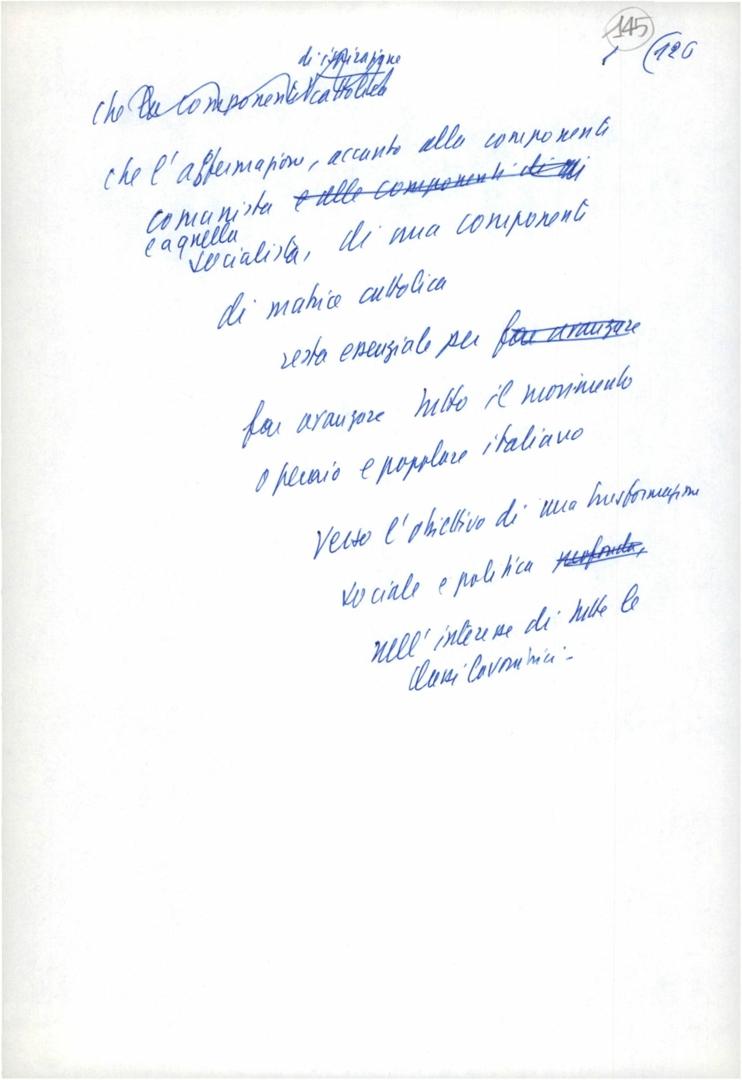 145
(126
di ispirazione
che la componente cattolica
che l'affermazione, accanto alla componente
comunista e alle componenti di
e a quella
socialista, di una componente
di matrice cattolica
resta essenziale per far avanzare
far avanzare tutto il movimento
operaio e popolare italiano
verso l'obiettivo di una trasformazione
sociale e politica profonda,
nell'interesse di tutte le
classi lavoratrici -